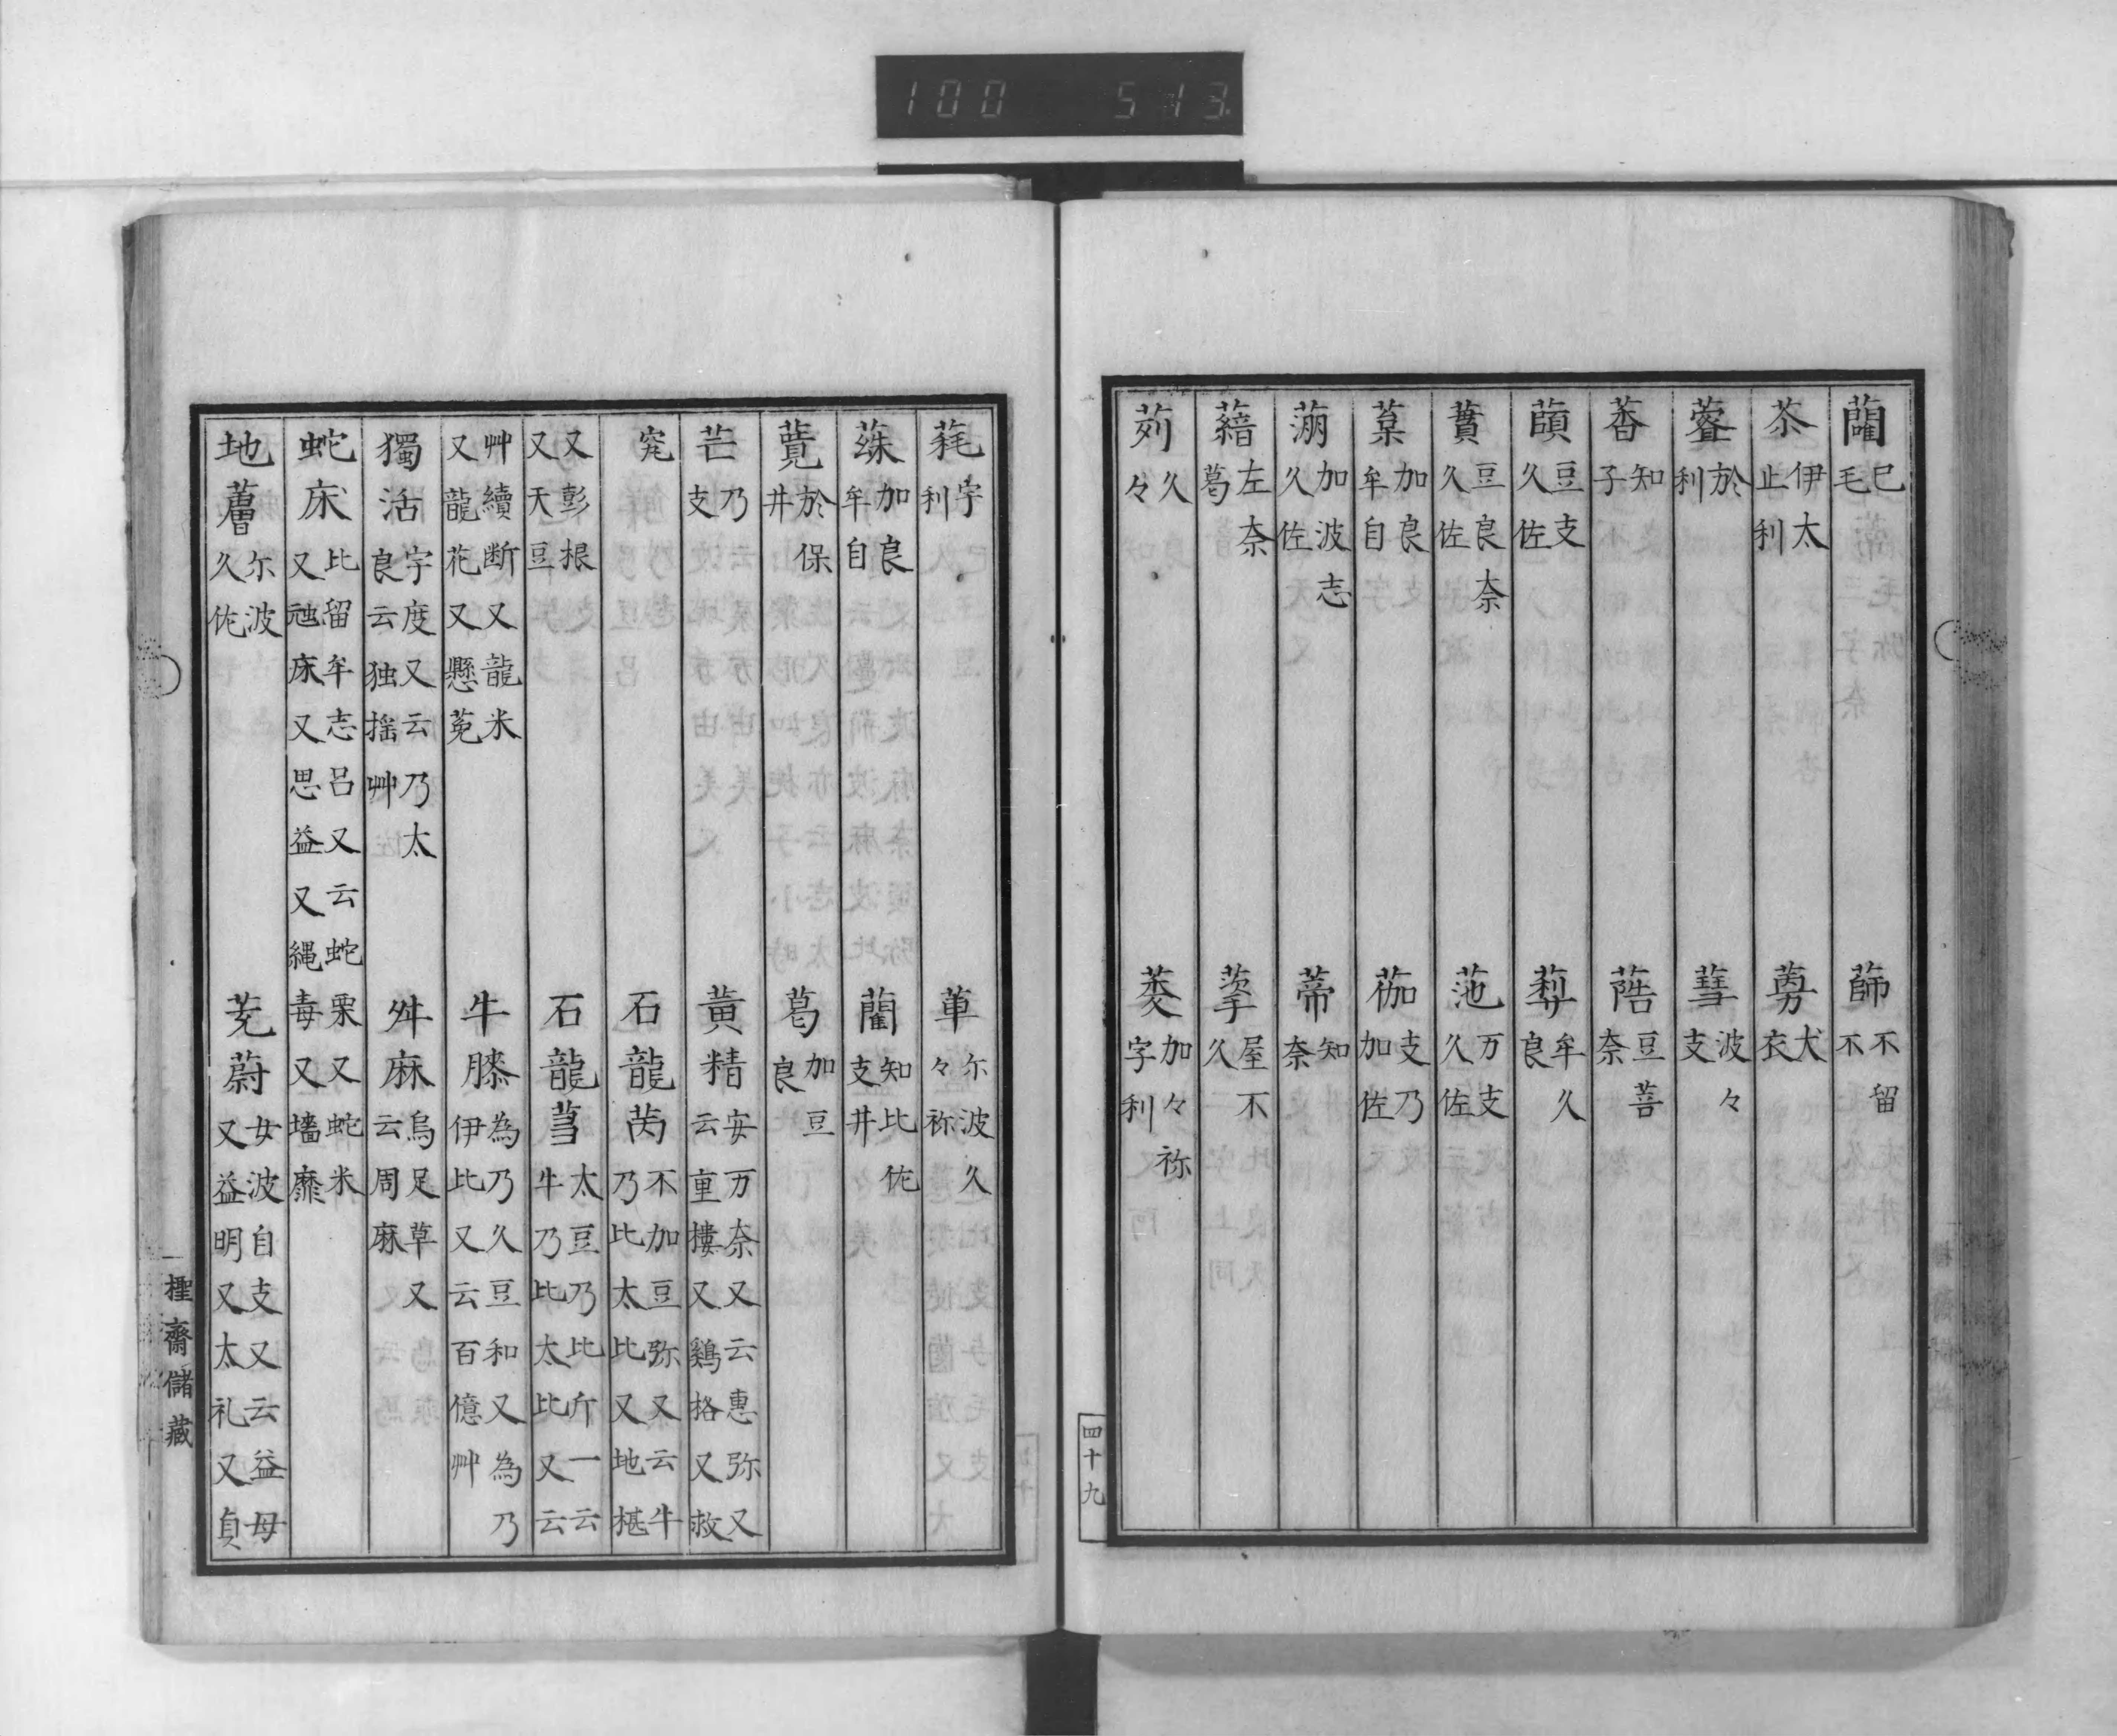 100 513.
巳毛 䔺 不留不
茶 伊太止利 犬衣
於利 波々支
知子 豆菩奈
豆支久佐 牟久良
蕡 豆良奈久佐 万支久佐
加良牟自 支乃加佐
加波志久佐 蒂 知奈
左奈葛 屋不久
茢 久々 加々祢字利
四十九
宇利 草 尓波久々祢
加良牟自 藺 知比佐支井
於保井 葛 加豆良
芒 乃支 黄精 安万奈又云惠弥又云重樓又鷄格又救
窕 石龍芮 不加豆弥又云牛乃比太比又地椹
又彭根又天豆 石龍蒭 太豆乃比斤一云牛乃比太比又云
艸續断又龍米又龍花又懸莞 牛膝 為乃久豆和又為乃伊比又云百億艸
獨活 宇度又云乃太良云独揺艸 舛麻 烏足草又云周麻
蛇床 比留牟志呂又云蛇粟又蛇米又虵床又思益又縄毒又墻蘼
地 尓波久佐 茺蔚 女波自支又云益母又益明又太礼又貞
齋儲藏